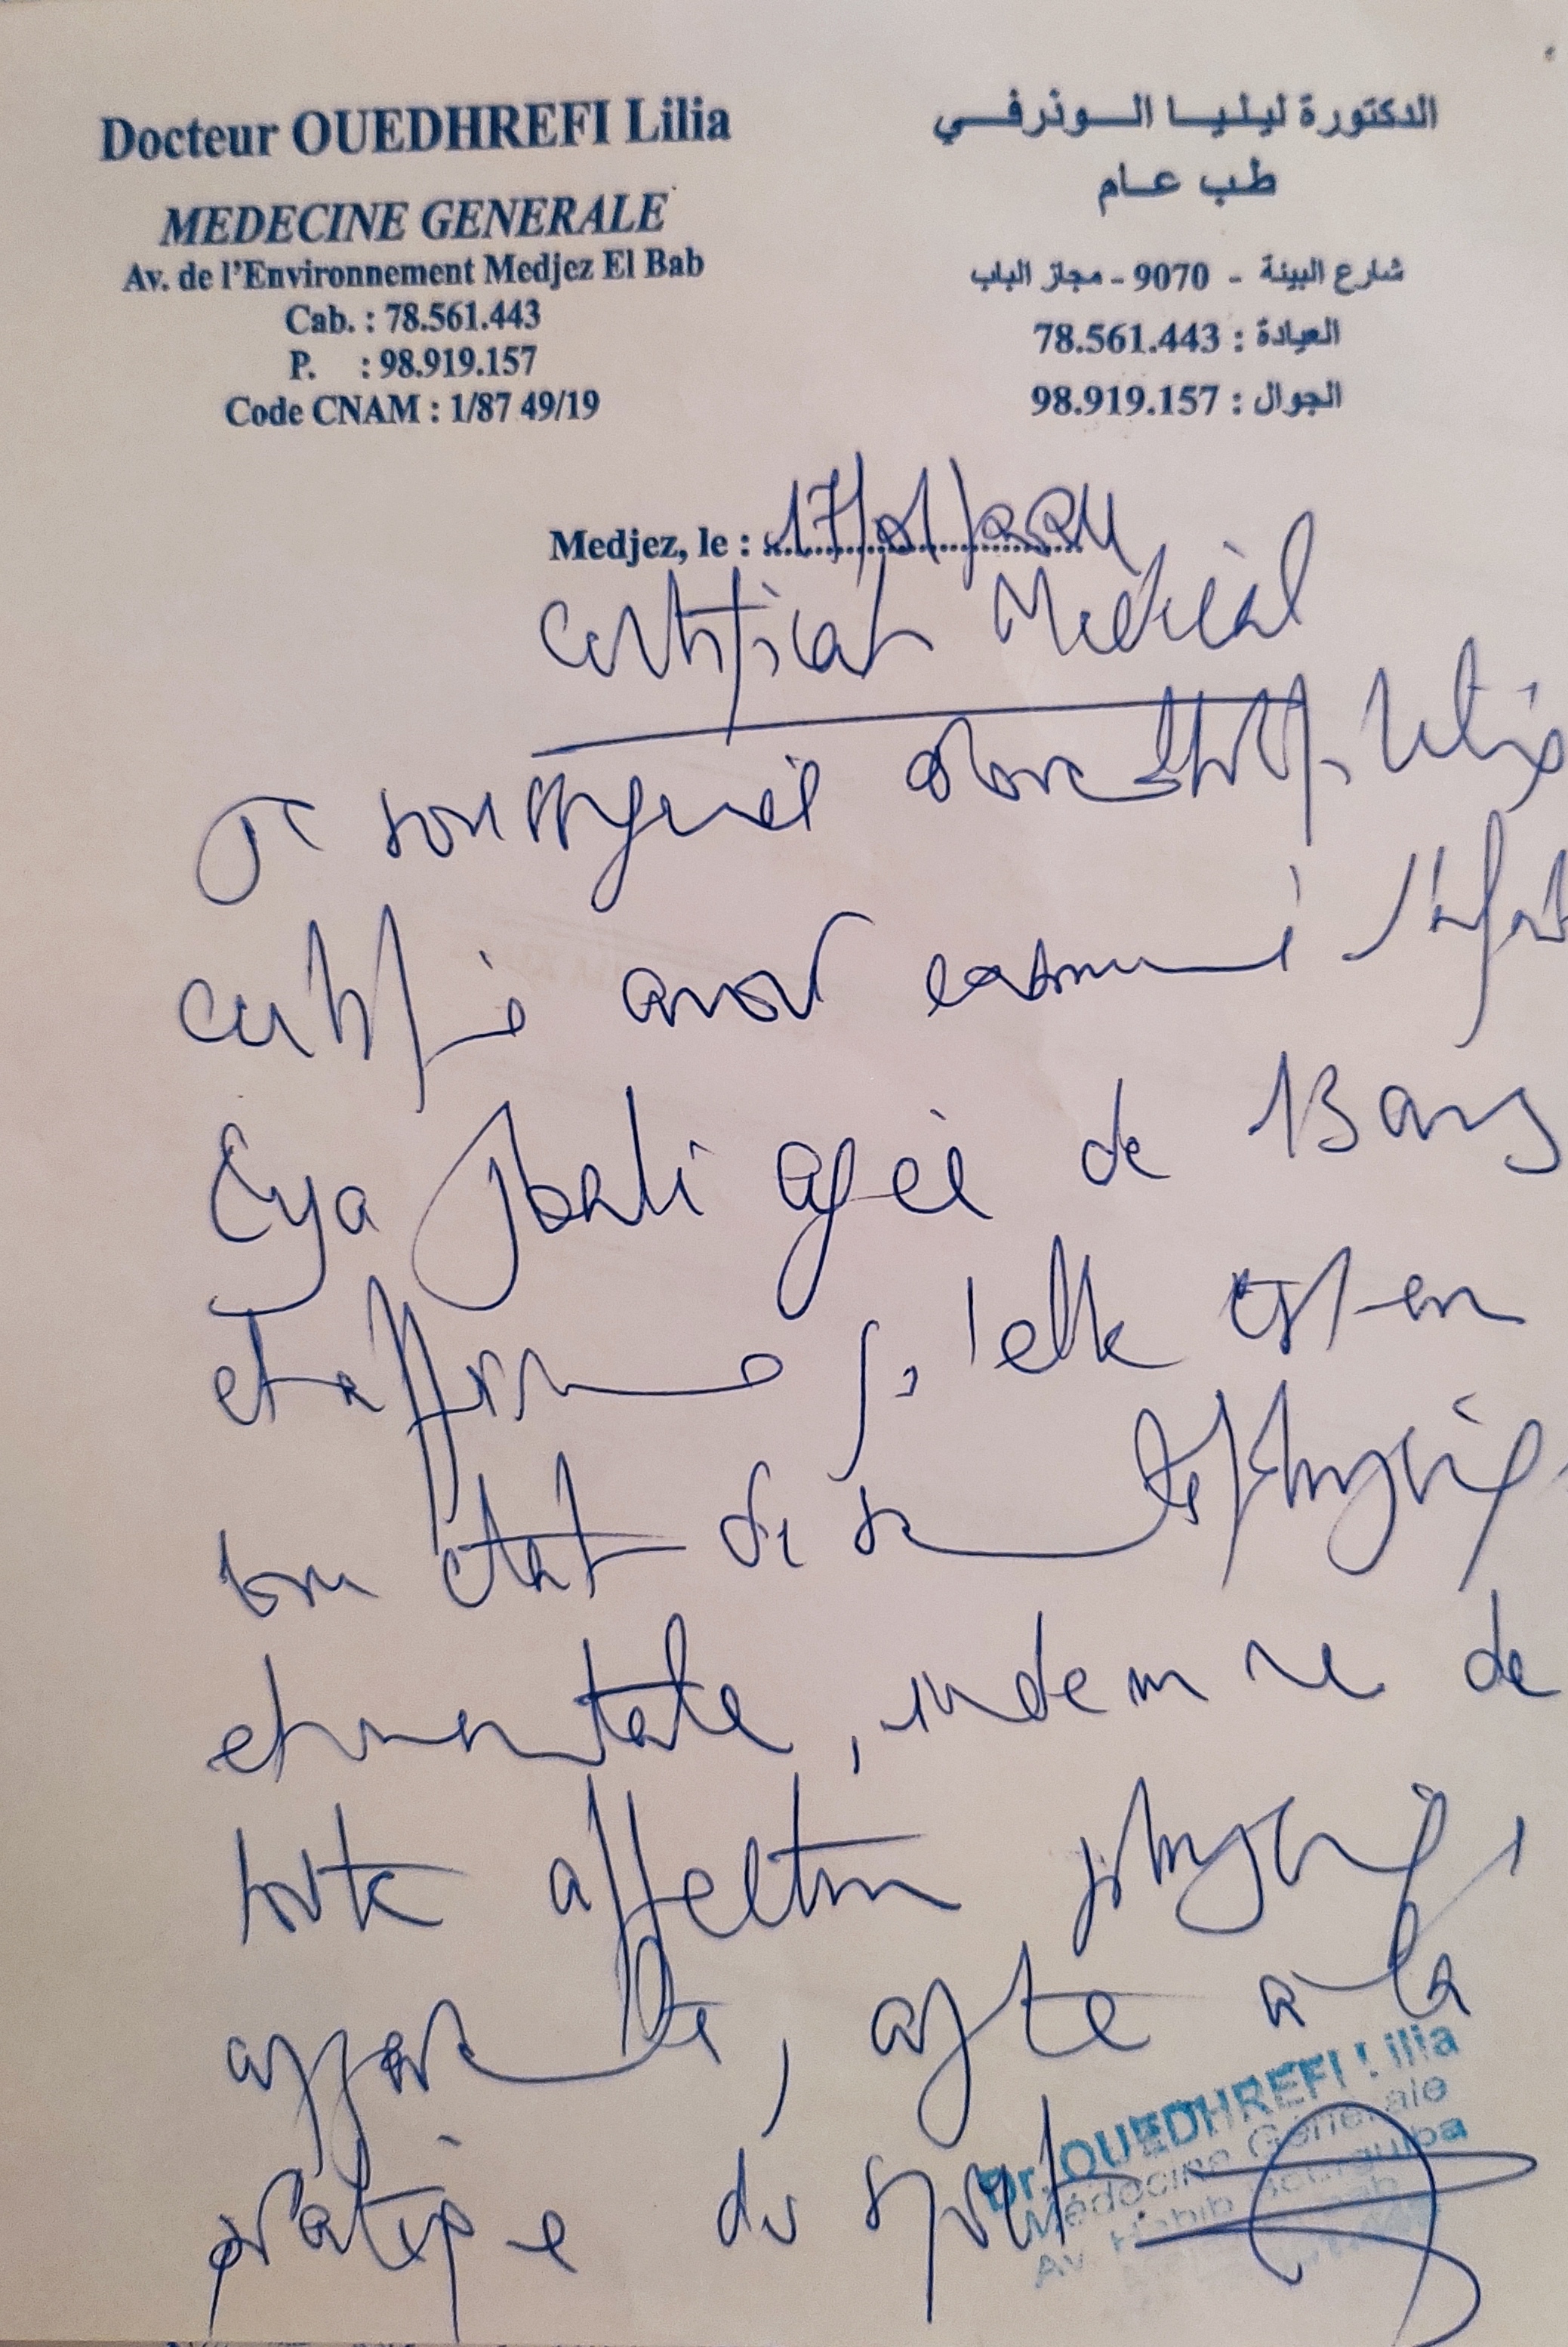 Docteur OUEDHREFI Lilia
MEDECINE GENERALE
Av. de l'Environnement Medjez El Bab
Cab. : 78.561.443
P. : 98.919.157
Code CNAM : 1/87 49/19
الدكتورة ليليا الوذرفي
طب عام
شارع البيئة - 9070 - مجاز الباب
العيادة : 78.561.443
الجوال : 98.919.157
Medjez, le : 17/01/2024
Certificat Médical
Je soussignée
certifie avoir examiné l'enfant
Eya Jbali agée de 13 ans
et affirme qu'elle est en
bon état de santé physique
et mentale, indemne de
toute affection physique
apparente, apte à la
pratique du sport
Dr. OUEDHREFI Lilia
Médecine Générale
Av. Habib Bourguiba